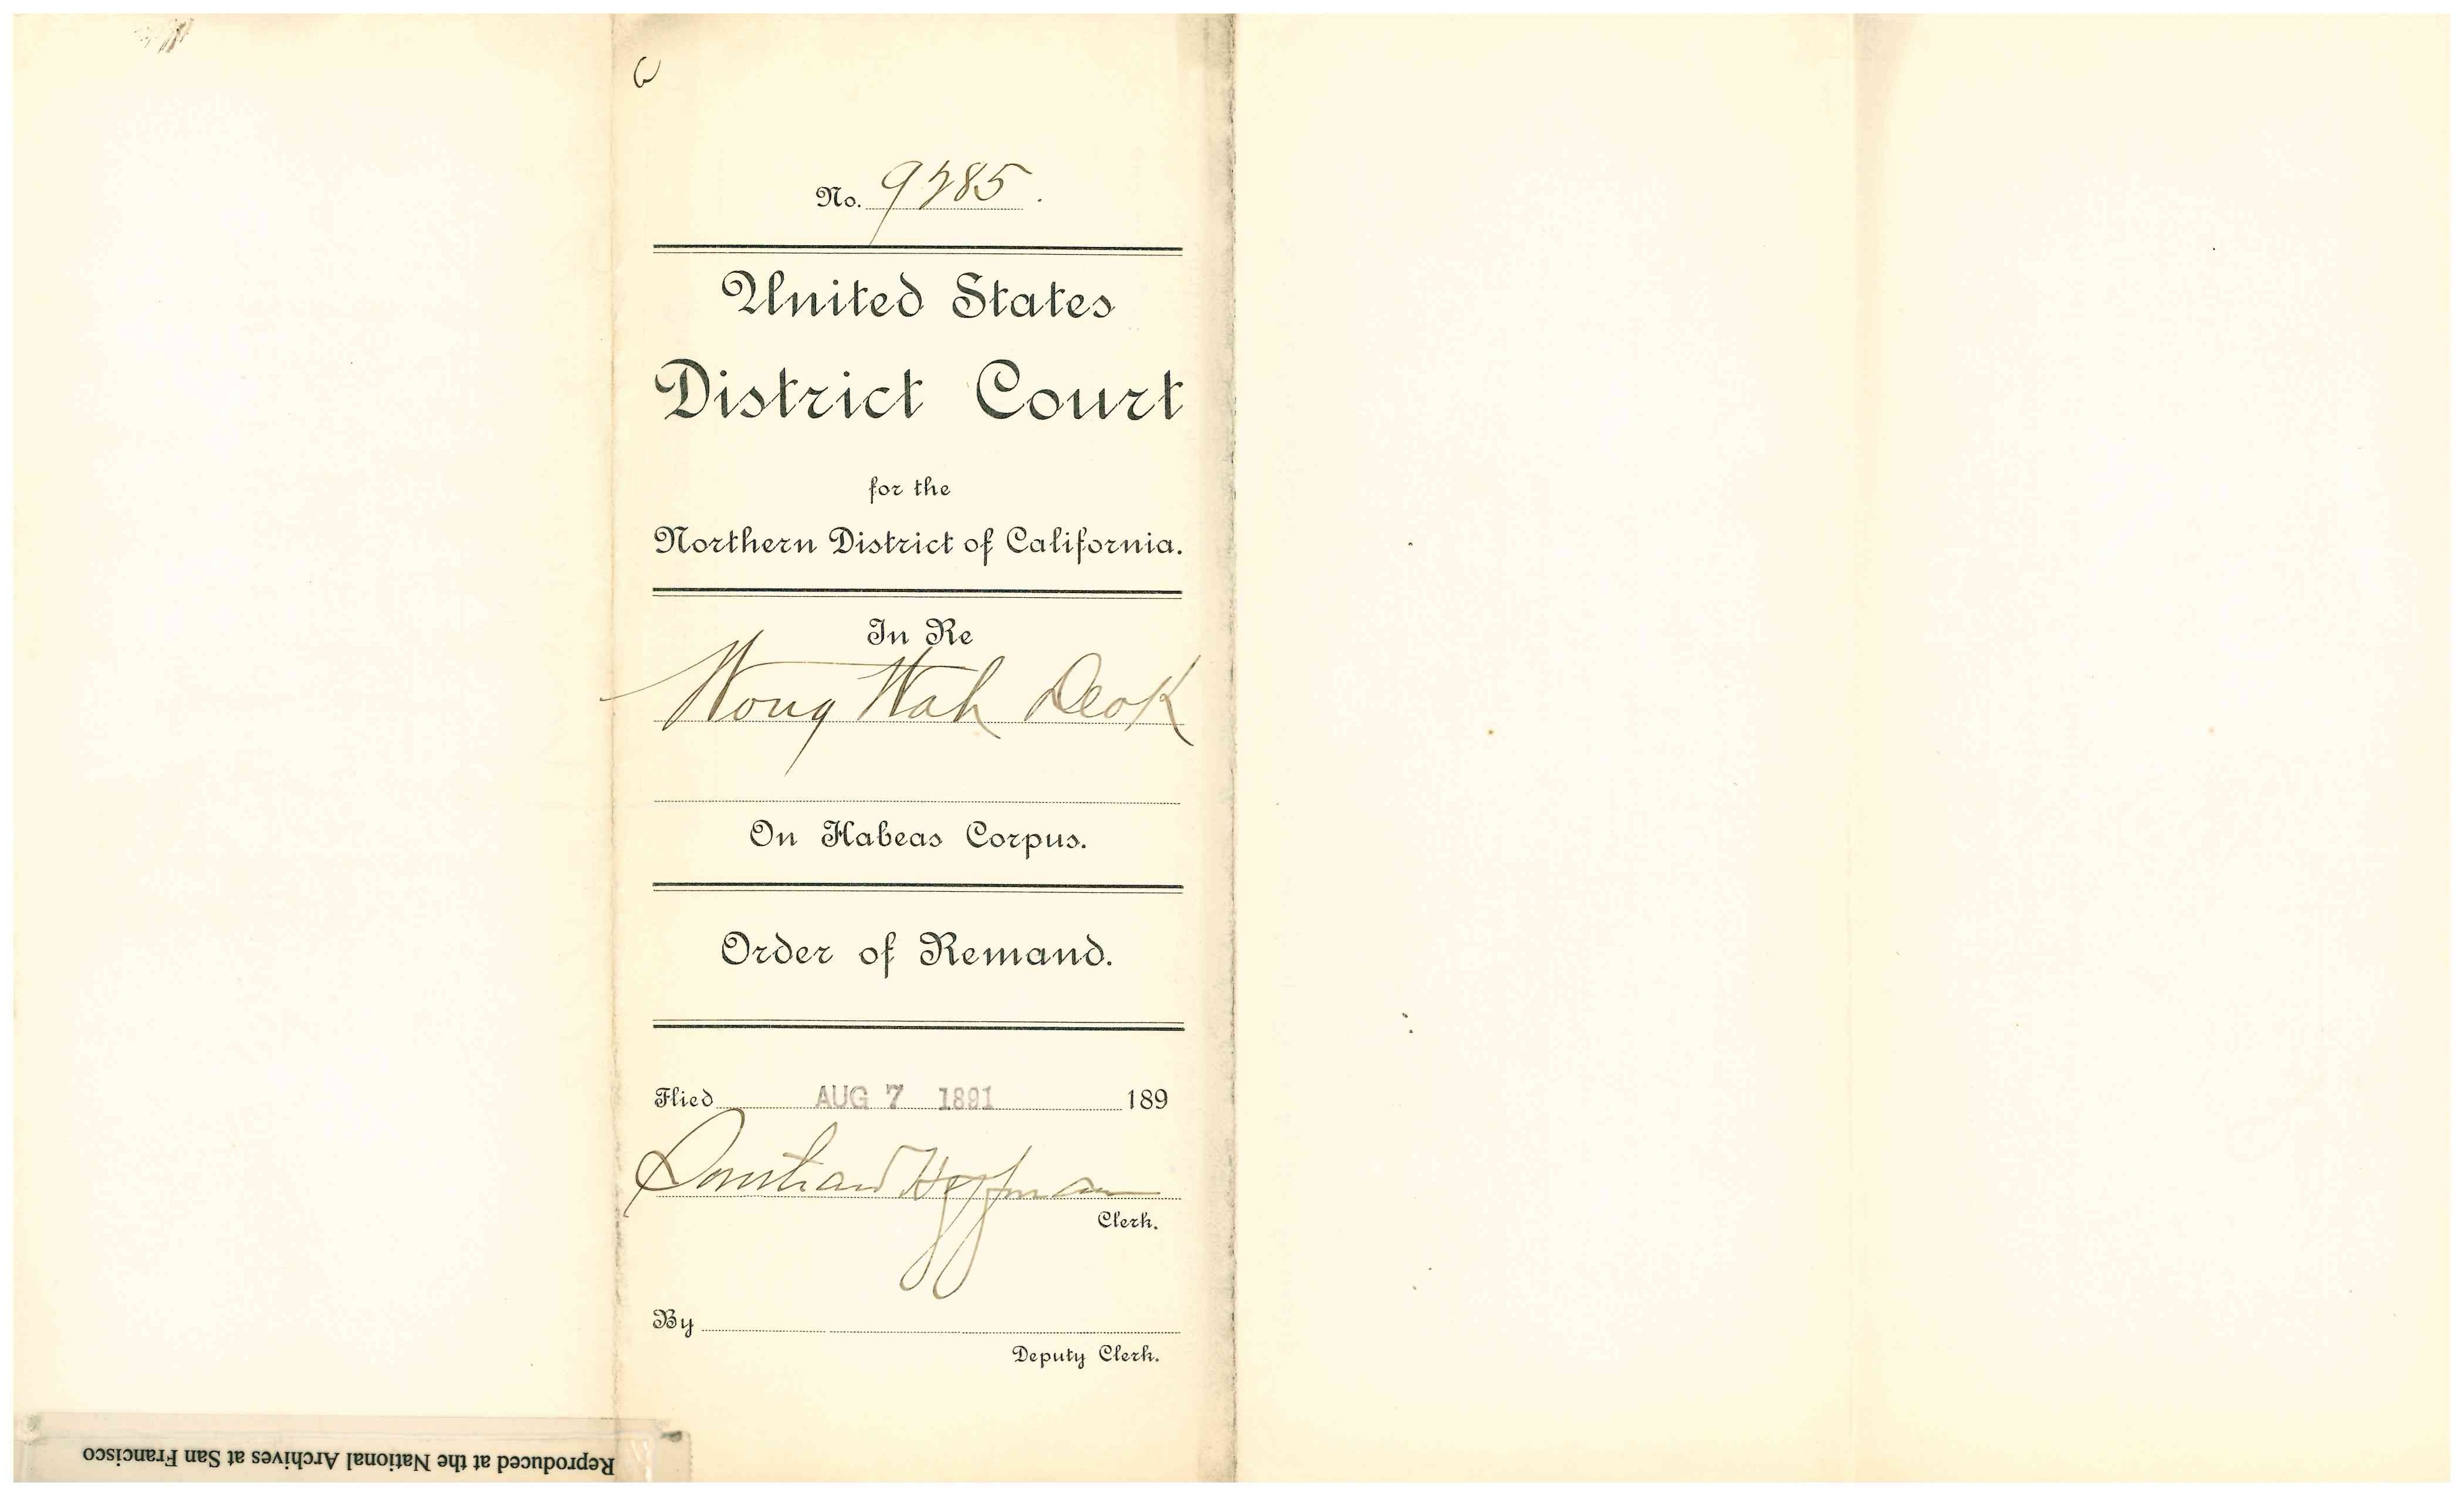 No. 9785.
United States
District Court
for the
Northern District of California.
In Re
Wong Wah Deok
On Habeas Corpus.
Order of Remand.
Filed AUG 7 1891 189
Southard Hoffman
Clerk.
By
Deputy Clerk.
Reproduced at the National Archives at San Francisco